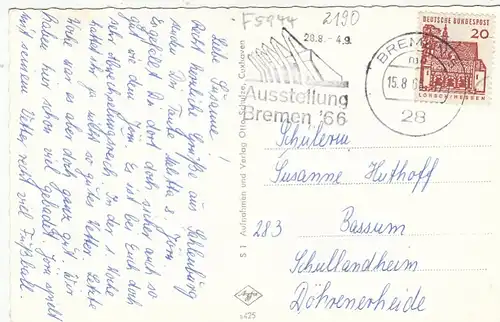 F5944
2190
28.8.-4.9.
Ausstellung
Bremen '66
BREMEN
15.8.6
28
DEUTSCHE BUNDESPOST
20
LORSCH/HESSEN
Liebe Susanne!
Recht herzliche Grüße aus
senden Dir Tante u. Jörn.
Es gefällt Dir dort doch sicher auch so
gut wie dem Jörn. Es ist bei Euch doch
sehr abwechslungsreich. In der 1. Woche
hattet ihr ja nicht so gutes Wetter. Letzte
Woche war es aber doch ganz gut. Wir
haben hier schon viel gebadet. Jörn spielt
mit seinem Vetter recht viel Fußball.
S 1 Aufnahmen und Verlag Otto Cuxhaven
Schülerin
Susanne Huthoff
283 Bassum
Schullandheim
Döhrenerheide